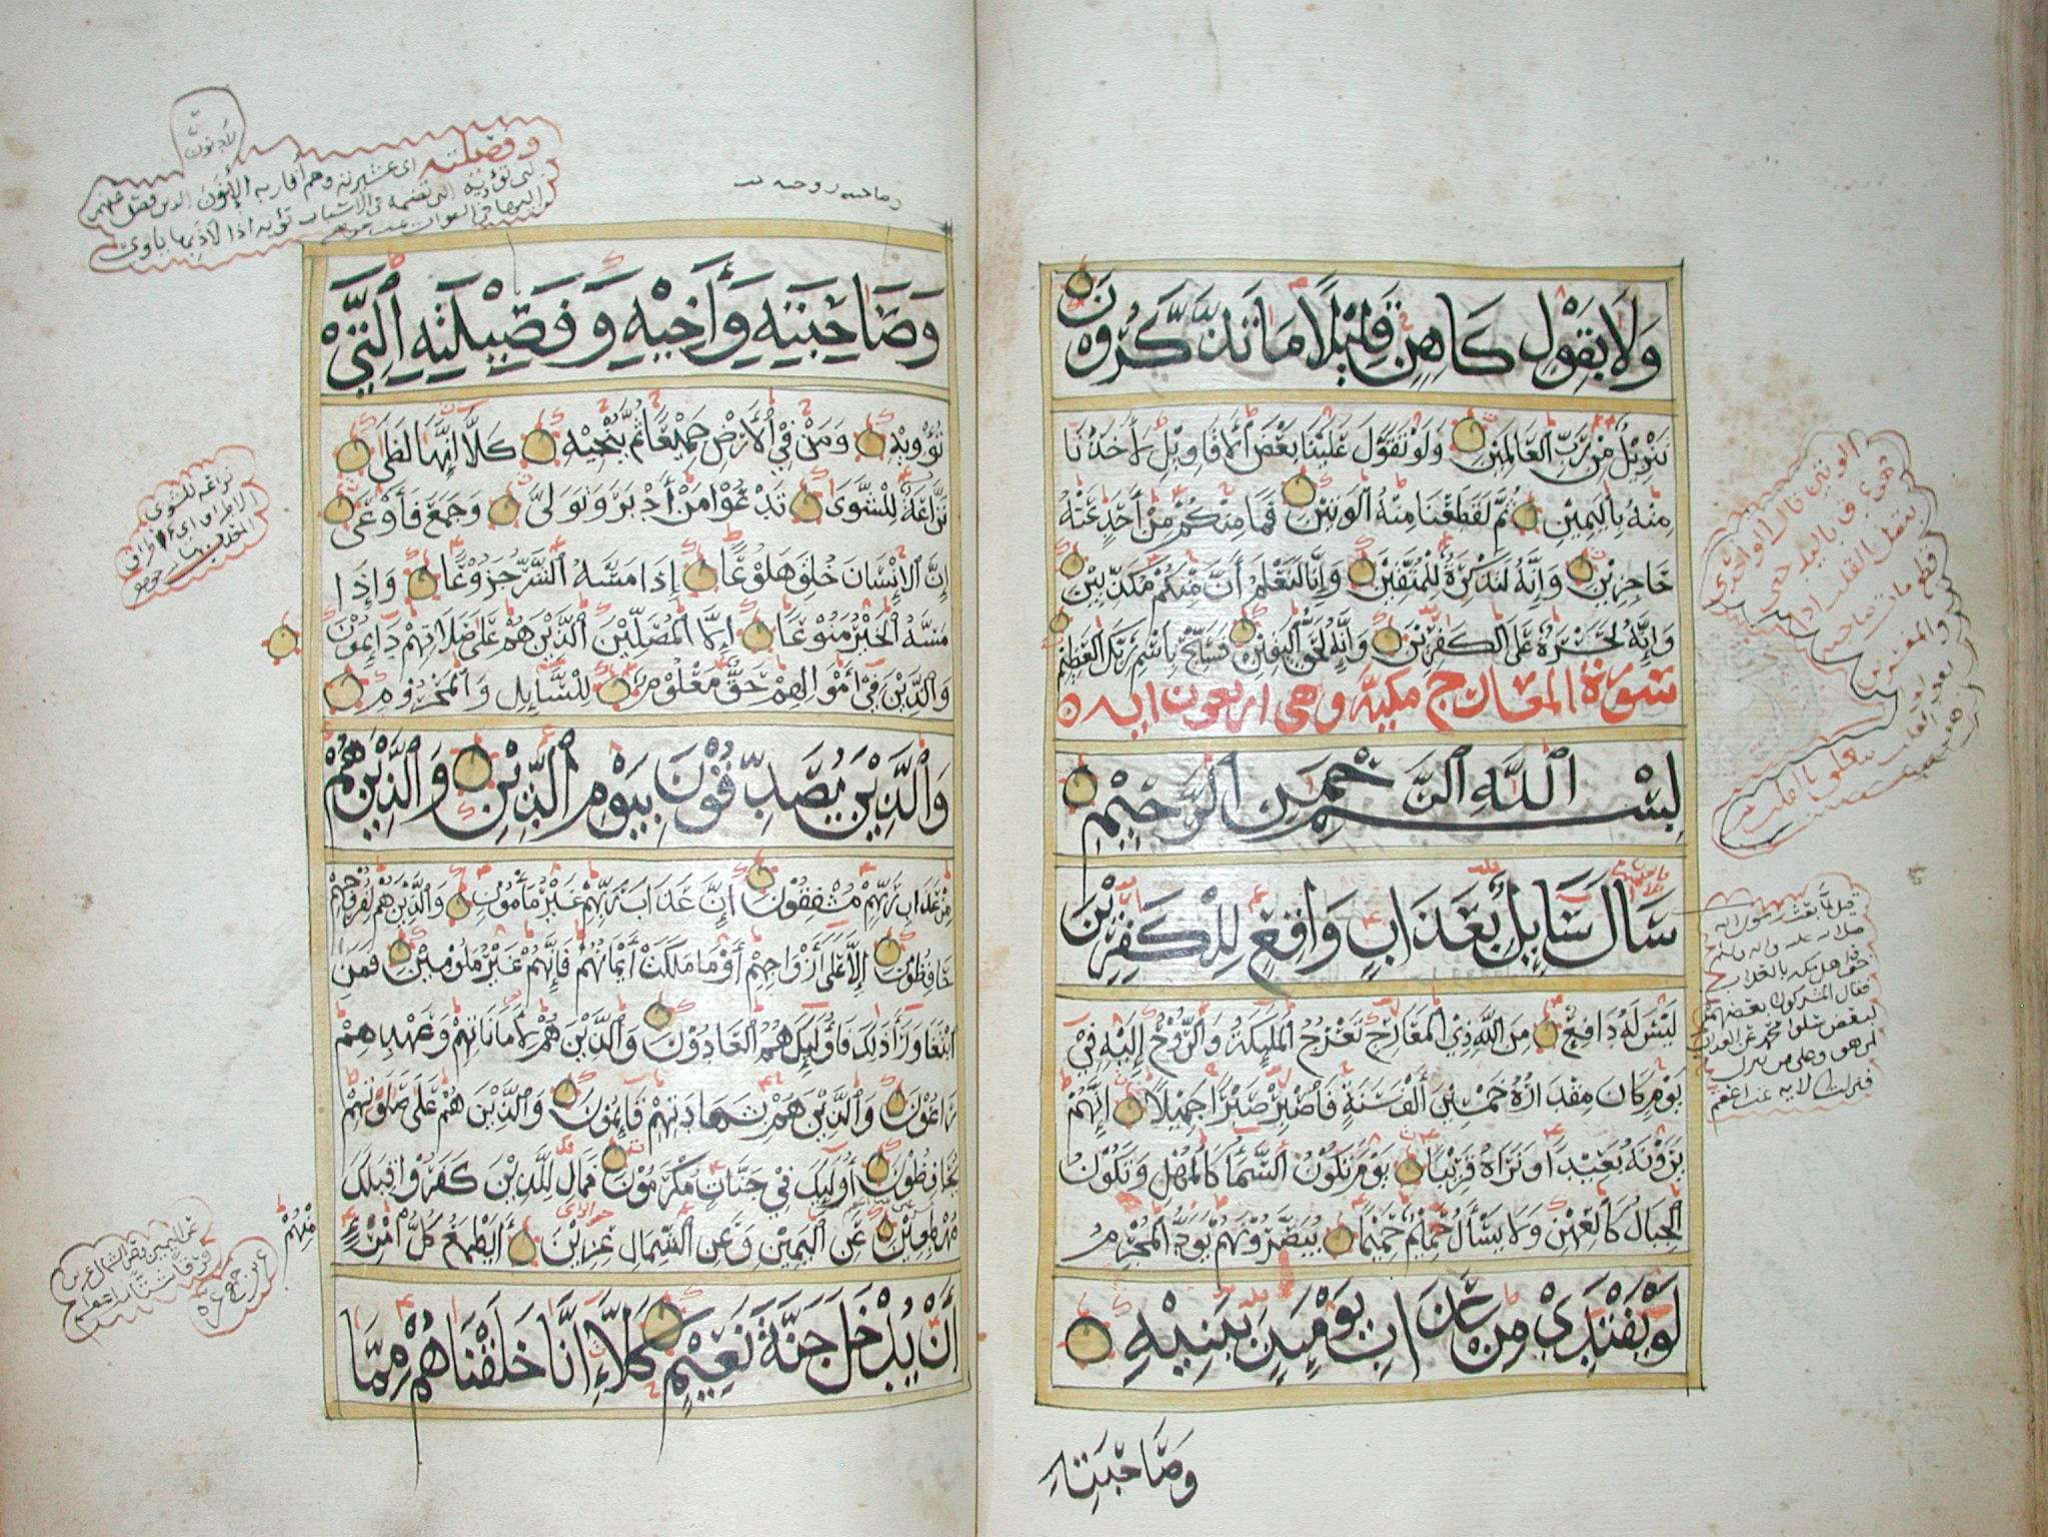 وَلَا بِقَوْلِ كَاهِنٍ قَلِيْلًا مَا تَذَّكَّرُوْنَ
تَنْزِيْلٌ مِّنْ رَّبِّ الْعَالَمِيْنَ وَلَوْ تَقَوَّلَ عَلَيْنَا بَعْضَ الْأَقَاوِيْلِ لَأَخَذْنَا
مِنْهُ بِالْيَمِيْنِ ثُمَّ لَقَطَعْنَا مِنْهُ الْوَتِيْنَ فَمَا مِنْكُمْ مِنْ أَحَدٍ عَنْهُ
حَاجِزِيْنَ وَإِنَّهُ لَتَذْكِرَةٌ لِّلْمُتَّقِيْنَ وَإِنَّا لَنَعْلَمُ أَنَّ مِنْكُمْ مُكَذِّبِيْنَ
وَإِنَّهُ لَحَسْرَةٌ عَلَى الْكَفِرِيْنَ وَإِنَّهُ لَحَقُّ الْيَقِيْنِ فَسَبِّحْ بِاسْمِ رَبِّكَ الْعَظِيْمِ
سورة المعارج مكية وهي اربعون اية
بِسْمِ اللَّهِ الرَّحْمَنِ الرَّحِيْمِ
سَأَلَ سَايِلٌ بِعَذَابٍ وَاقِعٍ لِلْكَفِرِيْنَ
لَيْسَ لَهُ دَافِعٌ مِنَ اللَّهِ ذِي الْمَعَارِجِ تَعْرُجُ الْمَلَيِكَةُ وَالرُّوْحُ إِلَيْهِ فِيْ
يَوْمٍ كَانَ مِقْدَارُهُ خَمْسِيْنَ أَلْفَ سَنَةٍ فَاصْبِرْ صَبْرًا جَمِيْلًا إِنَّهُمْ
يَرَوْنَهُ بَعِيْدًا وَنَرَاهُ قَرِيْبًا يَوْمَ تَكُوْنُ السَّمَاءُ كَالْمُهْلِ وَتَكُوْنُ
الْجِبَالُ كَالْعِهْنِ وَلَا يَسْأَلُ حَمِيْمٌ حَمِيْمًا يُبَصَّرُوْنَهُمْ يَوَدُّ الْمُجْرِمُ
لَوْ يَفْتَدِيْ مِنْ عَذَابِ يَوْمَيِذٍ بِبَنِيْهِ
وَصَاحِبَتِهِ
قيل لما بعث رسول الله
وَصَاحِبَتِهِ وَأَخِيْهِ وَفَصِيْلَتِهِ الَّتِيْ
تُؤْوِيْهِ وَمَنْ فِي الْأَرْضِ جَمِيْعًا ثُمَّ يُنْجِيْهِ كَلَّا إِنَّهَا لَظَى
نَزَّاعَةً لِّلشَّوَى تَدْعُوْا مَنْ أَدْبَرَ وَتَوَلَّى وَجَمَعَ فَأَوْعَى
إِنَّ الْإِنْسَانَ خُلِقَ هَلُوْعًا إِذَا مَسَّهُ الشَّرُّ جَزُوْعًا وَإِذَا
مَسَّهُ الْخَيْرُ مَنُوْعًا إِلَّا الْمُصَلِّيْنَ الَّذِيْنَ هُمْ عَلَى صَلَاتِهِمْ دَايِمُوْنَ
وَالَّذِيْنَ فِيْ أَمْوَالِهِمْ حَقٌّ مَعْلُوْمٌ لِلسَّايِلِ وَالْمَحْرُوْمِ
وَالَّذِيْنَ يُصَدِّقُوْنَ بِيَوْمِ الدِّيْنِ وَالَّذِيْنَ هُمْ
مِنْ عَذَابِ رَبِّهِمْ مُشْفِقُوْنَ إِنَّ عَذَابَ رَبِّهِمْ غَيْرُ مَأْمُوْنٍ وَالَّذِيْنَ هُمْ لِفُرُوْجِهِمْ
حَافِظُوْنَ إِلَّا عَلَى أَزْوَاجِهِمْ أَوْ مَا مَلَكَتْ أَيْمَانُهُمْ فَإِنَّهُمْ غَيْرُ مَلُوْمِيْنَ فَمَنِ
ابْتَغَا وَرَآءَ ذَلِكَ فَأُولَيِكَ هُمُ الْعَادُوْنَ وَالَّذِيْنَ هُمْ لِأَمَانَاتِهِمْ وَعَهْدِهِمْ
رَاعُوْنَ وَالَّذِيْنَ هُمْ بِشَهَادَتِهِمْ قَايِمُوْنَ وَالَّذِيْنَ هُمْ عَلَى صَلَوتِهِمْ
يُحَافِظُوْنَ أُولَيِكَ فِيْ جَنَّاتٍ مُكْرَمُوْنَ فَمَالِ الَّذِيْنَ كَفَرُوْا قِبَلَكَ
مُهْطِعِيْنَ عَنِ الْيَمِيْنِ وَعَنِ الشِّمَالِ عِزِيْنَ أَيَطْمَعُ كُلُّ امْرِئٍ
مِنْهُمْ
أَنْ يُدْخَلَ جَنَّةَ نَعِيْمٍ كَلَّا إِنَّا خَلَقْنَاهُمْ مِمَّا